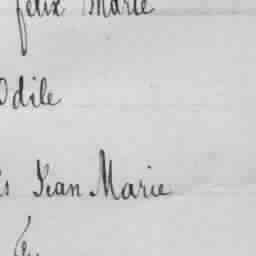 felix Marie
Odile
s Jean Marie